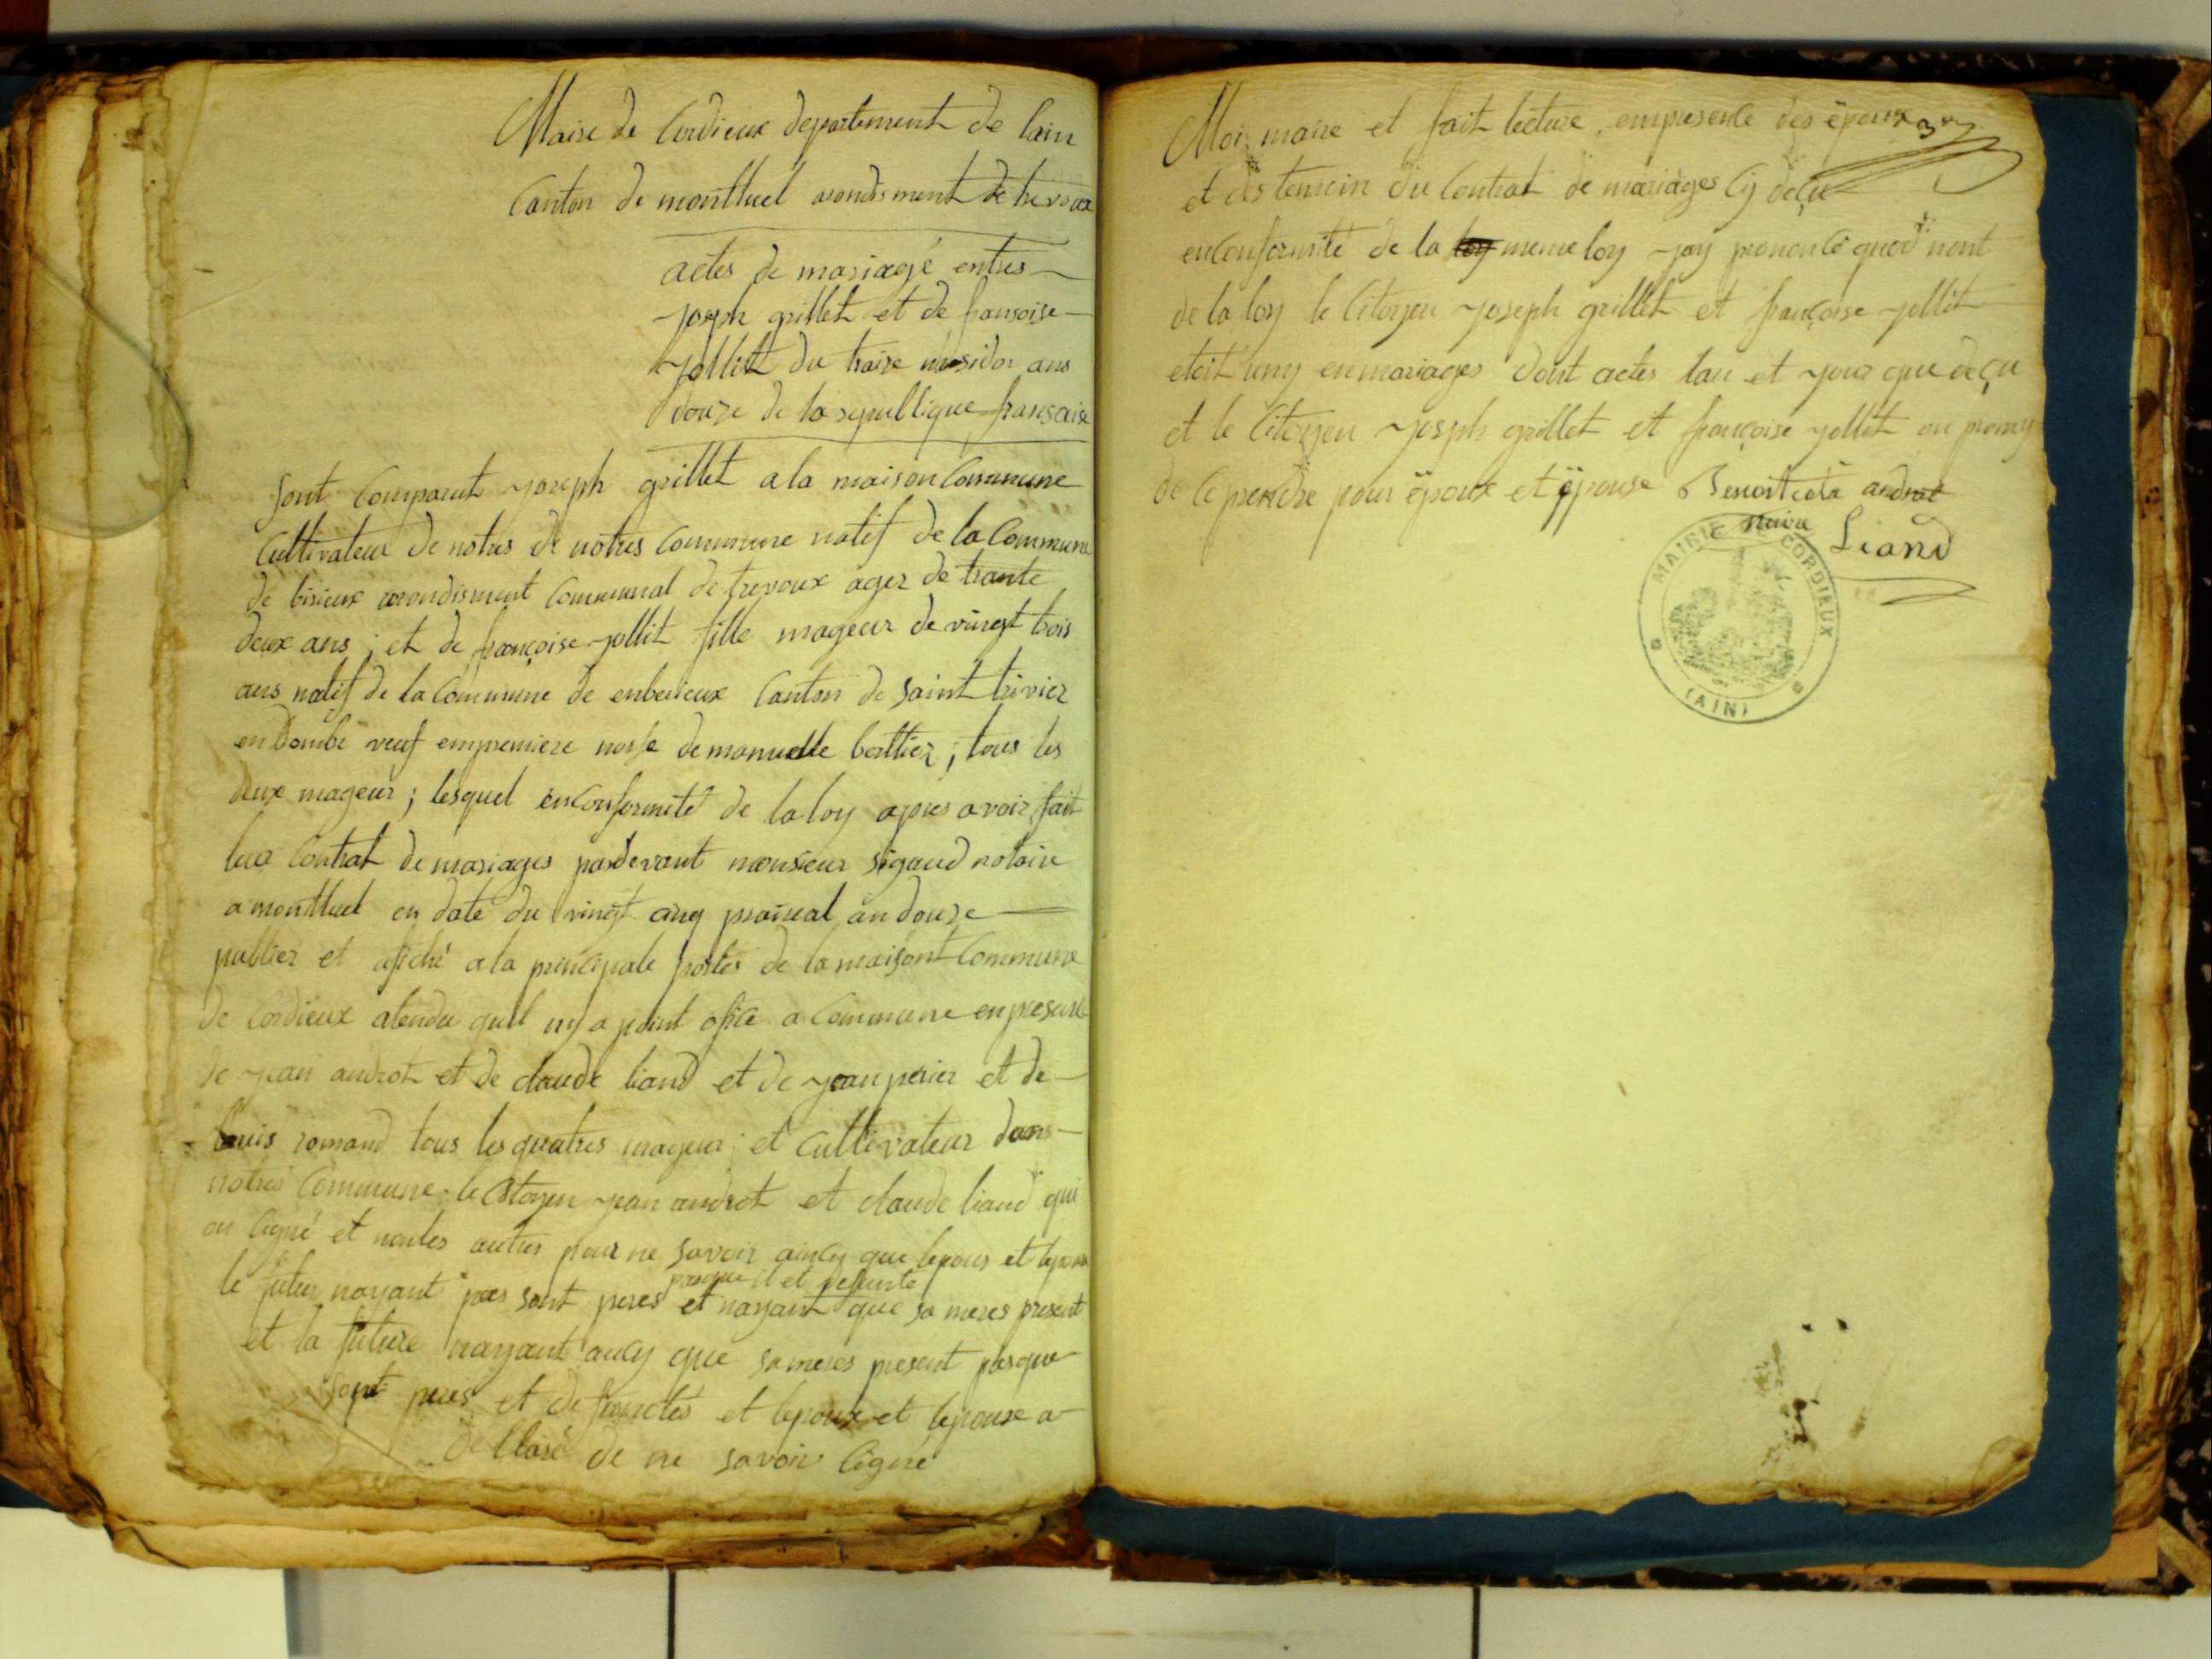 Maire de Cordieux departement de lain
Canton de montluel arondisment de trevoux
actes de mariage entres
joseph grillet et de fransoise
jollit du traize mesidor ans
douze de la republique fransaise
sont comparut joseph grillet a la maison Commune
Cultivateur de notres de notres commune natif de la Commune
de birieux arondisment communal de trevoux ager de trante
deux ans ; et de françoise jollit fille mageur de vingt trois
ans natif de la commune de enberieux Canton de saint trivier
en Dombe veuf empremiere nosse de manuelle berttier ; tous les
deux mageur ; lesquel enconformité de la loy apres avoir fait
leur Contrat de mariages pardevant monsieur sigaud notaire
a montluel en date du vingt cinq praireal an douze
publier et afiché a la principale portes de la maisont Commune
de Cordieux atendu quil ny a point ofice a Commune en presance
de jean androt et de claude liand et de jean perier et de
louis romand tous les quatres mageur ; et Cultivateur dans
notres Commune le Citoyen jean androt et claude liand qui
on ligné et nonles autres pour ne savoir aincy que lepous et lepouse
le futur nayant pas sont peres et nayant que sa meres present
parque il et defunte
et la future nayant aucy que sa meres present parque
sont peres et defunctes et lepoux et lepouse a
dellaré de ne savoir ligné
Moi maire et fait lecture, empresente des époux 3
et des temoin du Contrat de mariages Cy deçu
enconformité de la loy meme loy jay prononcé quod nont
de la loy le Citoyen joseph grillet et françoise jollit
etoit uny enmariages dont actes lan et jour que deçu
et le Citoyen joseph grillet et françoise jollit on promy
de ce prendre pour époux et épouse Benoit androt
maire
Liand
MAIRIE DE CORDIEUX
(AIN)